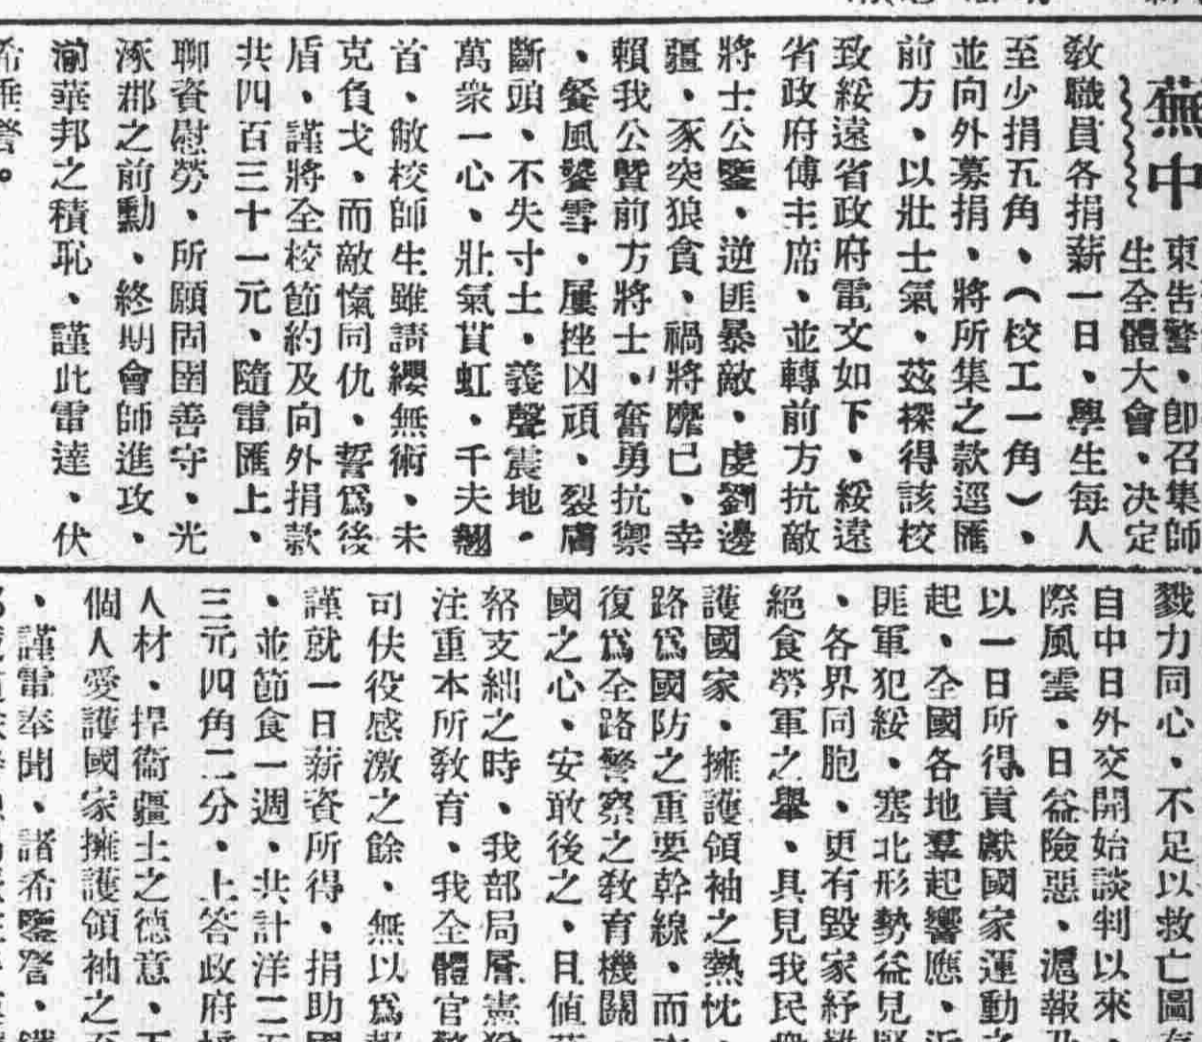 蕪中
東告警、卽召集師
生全體大會、决定
敎職員各捐薪一日、學生每人
至少捐五角、（校工一角）、
並向外募捐、將所集之款逕匯
前方、以壯士氣、茲探得該校
致綏遠省政府電文如下、綏遠
省政府傅主席、並轉前方抗敵
將士公鑒、逆匪暴敵、虔劉邊
疆、豕突狼貪、禍將靡已、幸
賴我公暨前方將士、奮勇抗禦
、餐風饕雪、屢挫凶頑、裂膚
斷頭、不失寸土、義聲震地、
萬衆一心、壯氣貫虹、千夫翹
首、敝校師生雖請纓無術、未
克負戈、而敵愾同仇、誓爲後
盾、謹將全校節約及向外捐款
共四百三十一元、隨電匯上、
聊資慰勞、所願固圉善守、光
涿郡之前勳、終期會師進攻、
湔華邦之積恥、謹此電達、伏
希垂詧。
戮力同心、不足以救亡圖存
自中日外交開始談判以來、
際風雲、日益險惡、滬報
以一日所得貢獻國家運動
起、全國各地羣起響應、
匪軍犯綏、塞北形勢益見
、各界同胞、更有毀家紓
絕食勞軍之舉、具見我民衆
護國家、擁護領袖之熱忱
路爲國防之重要幹線、而
復爲全路警察之敎育機關
國之心、安敢後之、且值
帑支絀之時、我部局層憲
注重本所敎育、我全體官
司伕役感激之餘、無以爲報
謹就一日薪資所得、捐助國
、並節食一週、共計洋二
三元四角二分、上答政府
人材、捍衞疆土之德意、下
個人愛護國家擁護領袖之至
、謹電奉聞、諸希鑒詧、